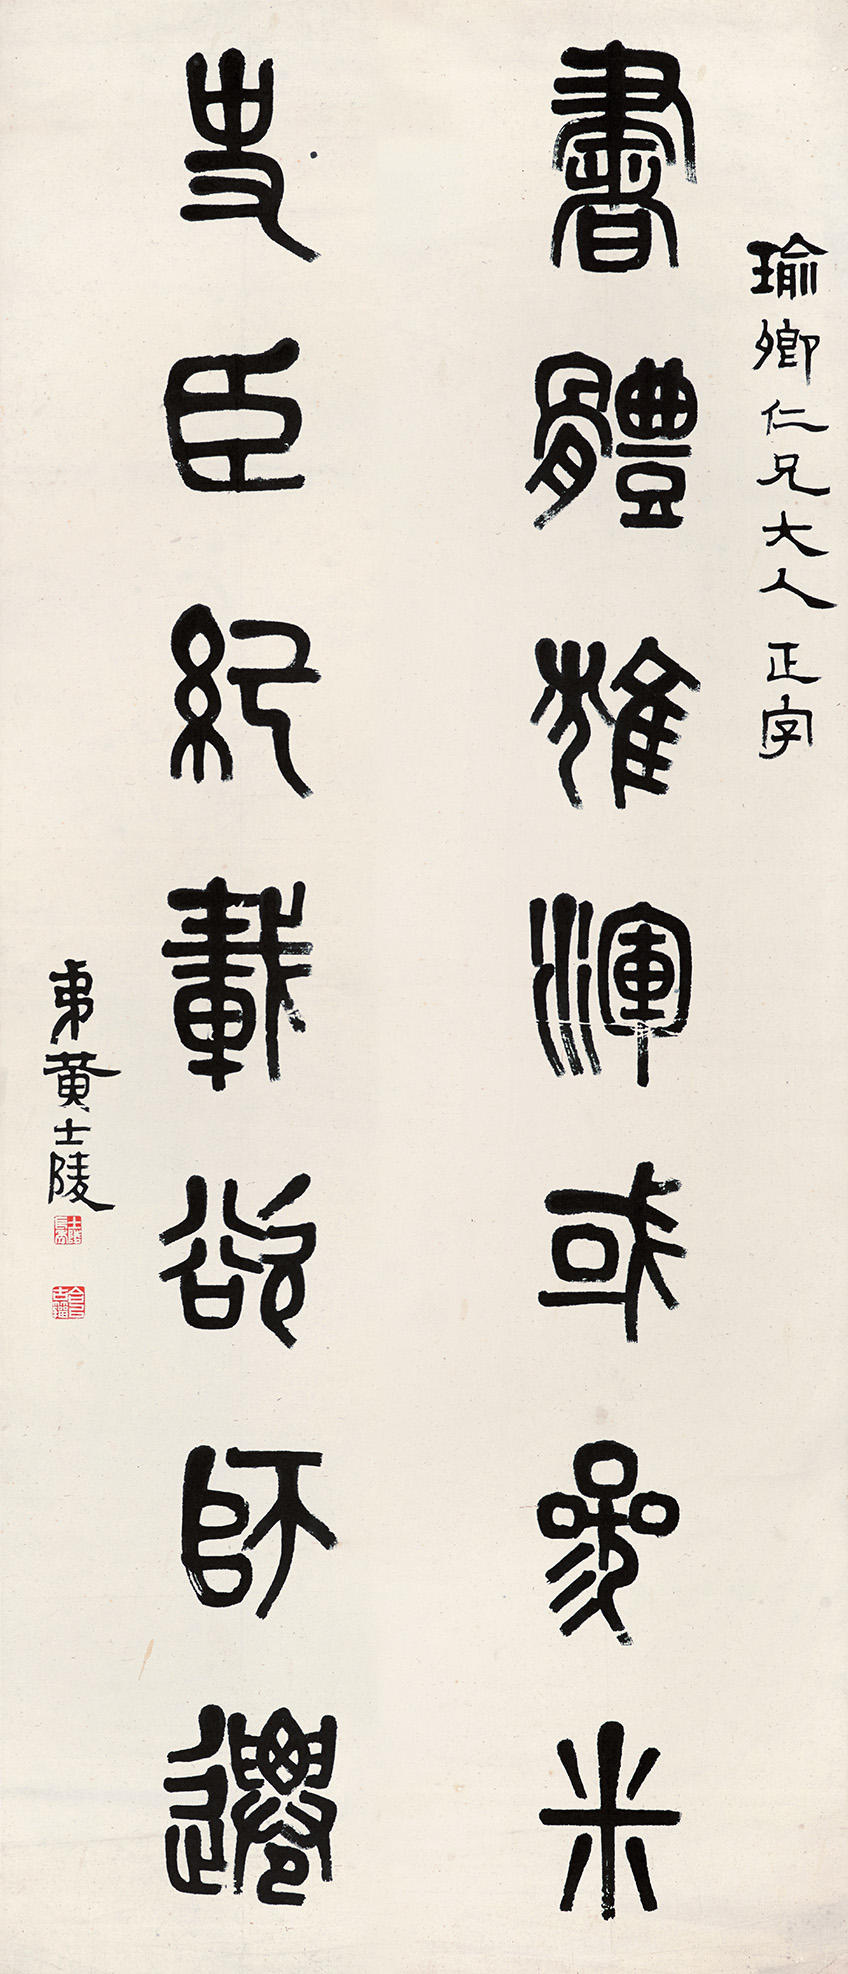 瑜卿仁兄大人正字
書體雄渾或參米
史臣紀載欲師遷
弟黃士陵